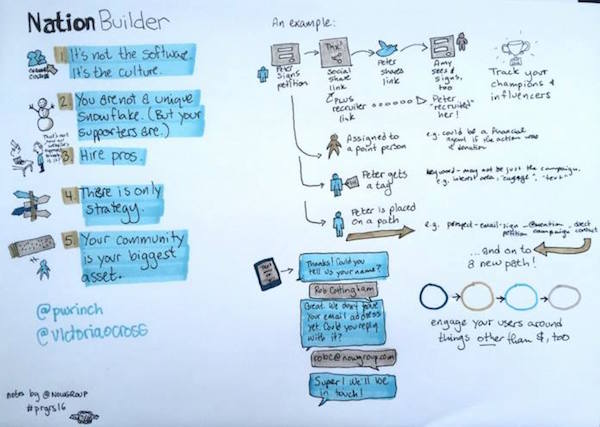 NationBuilder
1. It's not the software.
It's the culture.
2. You are not a unique
snowflake. (But your
supporters are.)
3. Hire pros.
4. There is only
strategy.
5. Your community
is your biggest
asset.
@pwrinch
@victoriaocross
notes by @NOWGROUP
#prgrs16
An example:
Peter
Signs
petition
Thx!
Social
share
link
Plus
recruiter
link
Peter
shares
link
Amy
sees &
signs,
too
Peter
"recruited"
her!
Track your
champions &
influencers
Assigned to
a point person
e.g. could be a financial
agent if the action was
a donation
Peter gets
a tag
keyword - may not be just the campaign.
e.g. interest area, "engage", "text"
Peter is placed
on a path
e.g. prospect - email - sign
petition campaign contact
...and on to
a new path!
Thanks! Could you
tell us your name?
Rob Cottingham
Great. We don't have
your email address
yet. Could you reply
with it?
robc@nowgroup.com
Super! We'll be
in touch!
engage your users around
things other than $, too